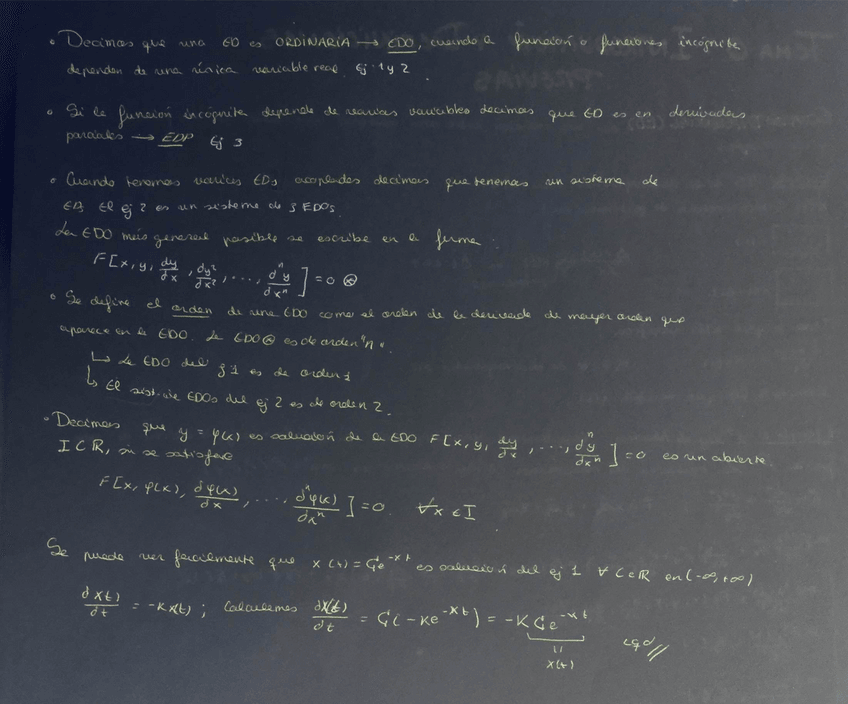 • Decimos que una ED es ORDINARIA → EDO, cuando la función o funciones incógnita
dependen de una única variable real. Ej. 1 y 2.
• Si la función incógnita depende de varias variables decimos que ED es en derivadas
parciales → EDP Ej 3
• Cuando tenemos varias EDs acopladas decimos que tenemos un sistema de
ED, El ej 2 es un sistema de 3 EDOs.
La EDO más general posible se escribe en la forma:
F[x, y, dy/dx, dy²/dx², ..., dⁿy/dxⁿ] = 0 ⊛
• Se define el orden de una EDO como el orden de la derivada de mayor orden que
aparece en la EDO. La EDO ⊛ es de orden "n".
↳ La EDO del ej 1 es de orden 1
↳ El sist. de EDOs del ej 2 es de orden 2.
• Decimos que y = φ(x) es solución de la EDO F[x, y, dy/dx, ..., dⁿy/dxⁿ] = 0 es un abierto
I ⊂ ℝ, si se satisface
F[x, φ(x), dφ(x)/dx, ..., dⁿφ(x)/dxⁿ] = 0 ∀x ∈ I
Se puede ver facilmente que x(t) = C₁e^-Kt es solución del ej 1 ∀ C ∈ ℝ en (-∞, +∞)
dX(t)/dt = -Kx(t); Calculemos dX(t)/dt = C₁(-Ke^-Kt) = -K C₁e^-Kt
=
x(t)
cqd //